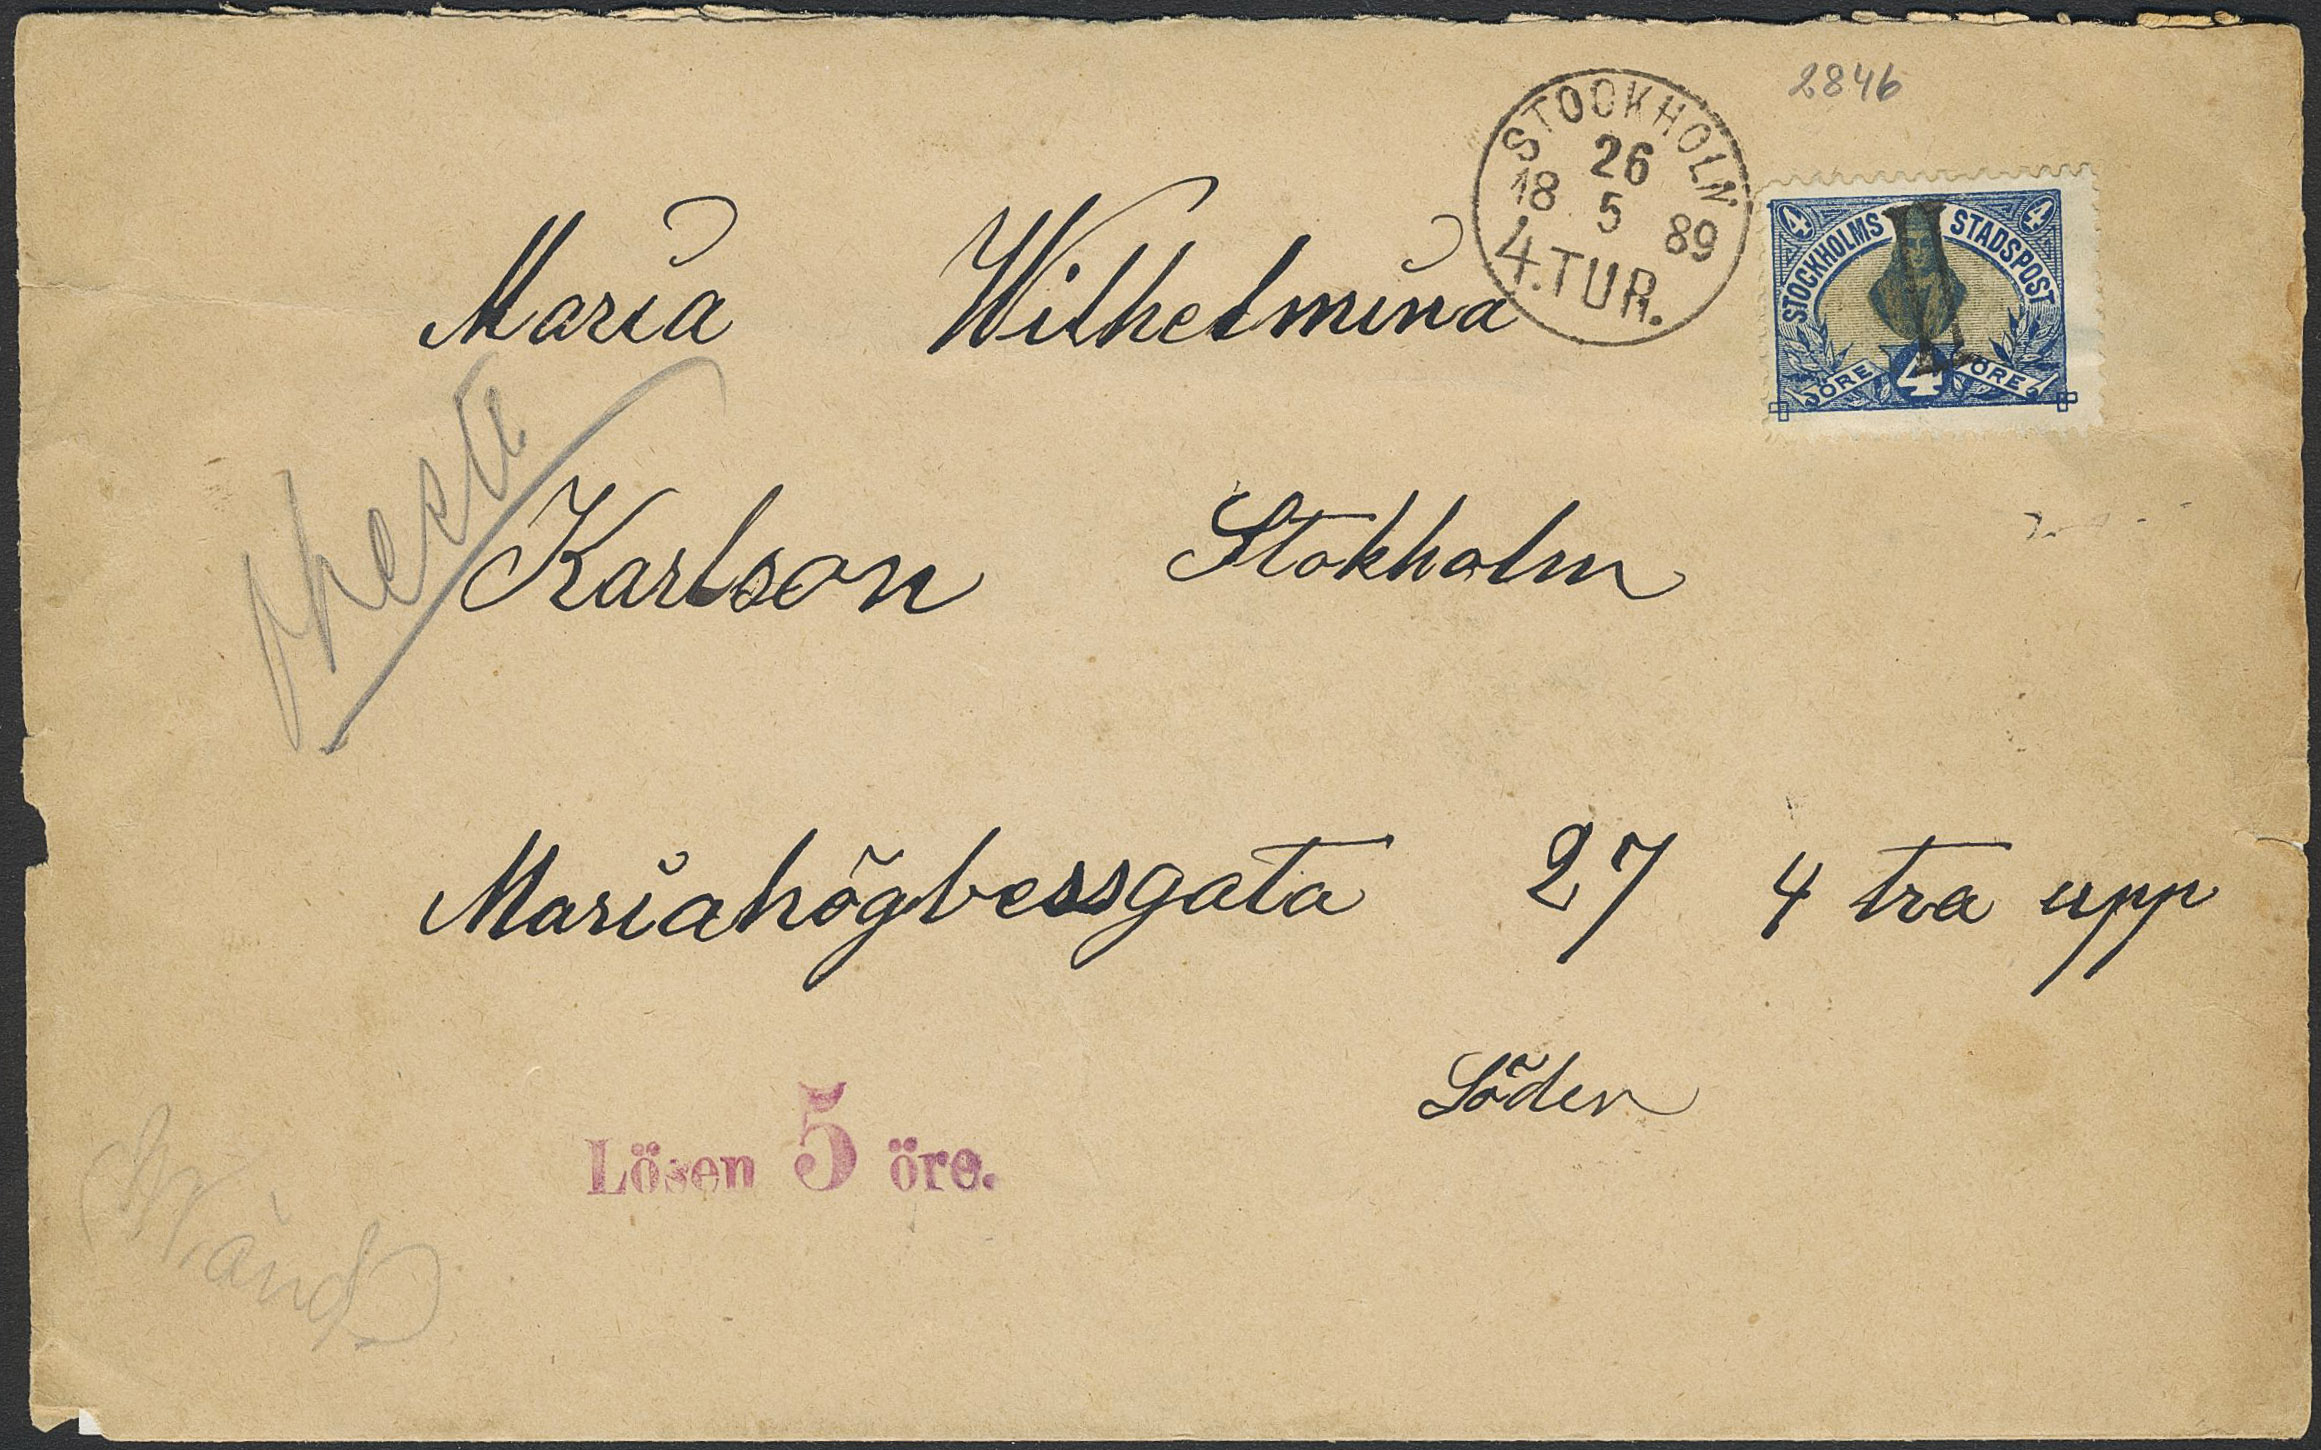 2846
STOCKHOLM
26
18 5 89
4. TUR.
4 4
STOCKHOLMS STADSPOST
ÖRE 4 ÖRE
Maria Wilhelmina
Karlson Stokholm
Mariahögbessgata 27 4 tra upp
Söder
Lösen 5 öre.